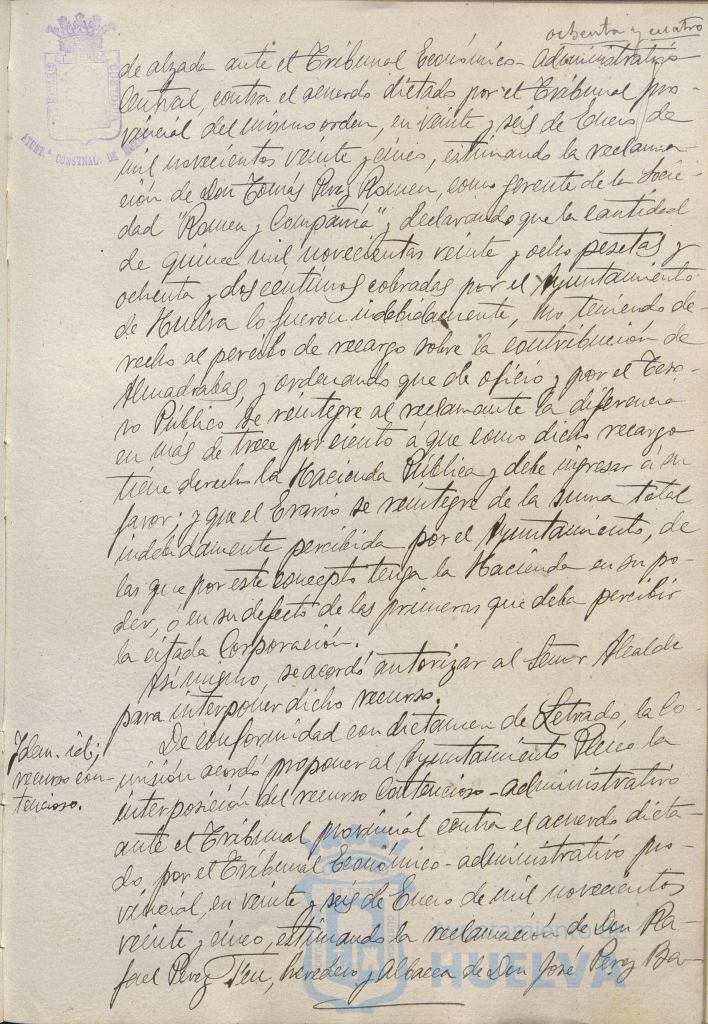 ochenta y cuatro
de alzada ante el Tribunal Económico-administrativo
Central, contra el acuerdo dictado por el Tribunal pro-
vincial del mismo orden, en veinte y seis de Enero de
mil novecientos veinte y cinco, estimando la reclama-
ción de Don Tomás Perez Romeu, como gerente de la Socie-
dad "Romeu y Compañía" y declarando que la cantidad
de quince mil novecientas veinte y ocho pesetas y
ochenta y dos céntimos cobradas por el Ayuntamiento
de Huelva lo fueron indebidamente, no teniendo de-
recho al percibo de recargo sobre la contribución de
Almadrabas, y ordenando que de oficio y por el Teso-
ro Público se reintegre al reclamante la diferencia
en más de trece por ciento a que como dicho recargo
tiene derecho la Hacienda Pública y debe ingresar a su
favor; y que el Erario se reintegre de la suma total
indebidamente percibida por el Ayuntamiento, de
las que por este concepto tenga la Hacienda en su po-
der, ó en su defecto de las primeras que deba percibir
la citada Corporación.
Asi mismo, se acordó autorizar al Señor Alcalde
para interponer dicho recurso.
Idem. id;
recurso con-
tencioso.
De conformidad con dictamen de Letrado, la Co-
misión acordó proponer al Ayuntamiento Pleno la
interposición del recurso Contencioso-administrativo
ante el Tribunal provincial contra el acuerdo dicta-
do por el Tribunal Económico-administrativo pro-
vincial, en veinte y seis de Enero de mil novecientos
veinte y cinco, estimando la reclamación de Don Ra-
fael Perez Feu, heredero y Albacea de Don José Perez Ba-
AYUNT.º CONSTNAL. DE
Ayuntamiento de
HUELVA